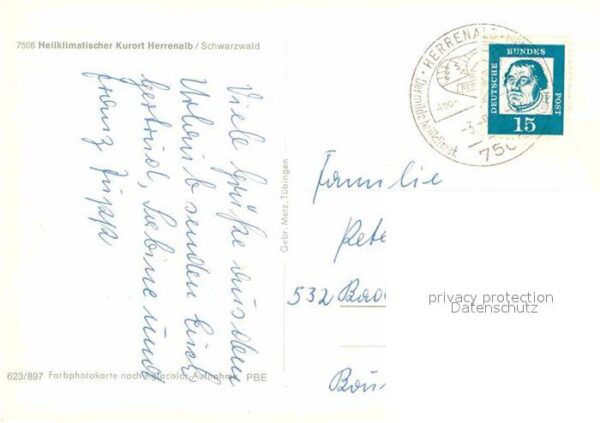 7506 Heilklimatischer Kurort Herrenalb / Schwarzwald
Viele Grüße aus dem
Urlaub senden Euch
Gertrud, Sabine und
Franz
Gebr. Metz, Tübingen
623/897 Farbphotokarte nach Agfacolor-Aufnahme PBE
HERRENALB
750
DEUTSCHE
BUNDES
POST
15
Familie
Pete
532 Bad
privacy protection
Datenschutz